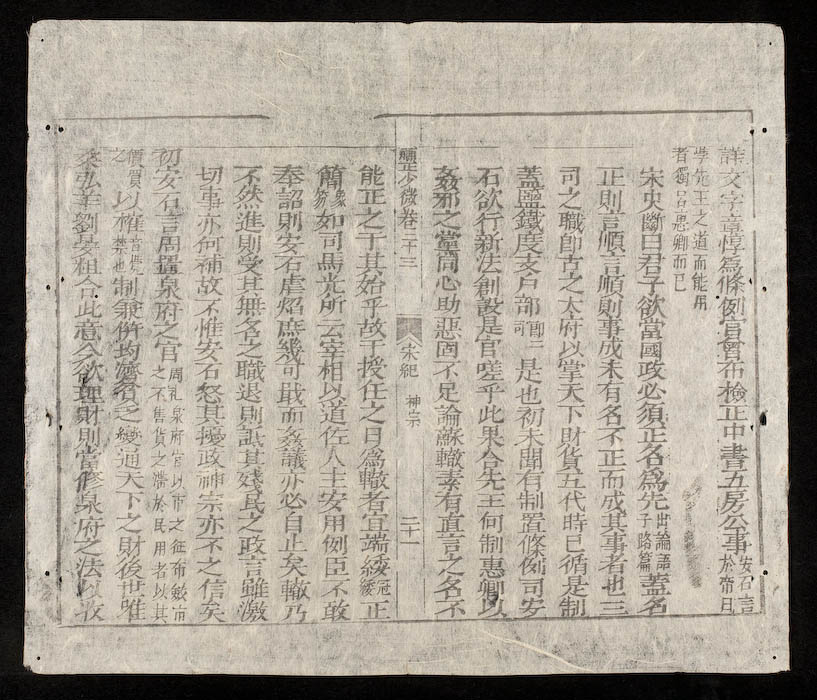 詳文字章惇為條例官曾布檢正中書五房公事安石言於帝曰
學先王之道而能用者獨呂惠卿而已
宋史斷曰君子欲當國政必須正名為先出論語子路篇蓋名
正則言順言順則事成未有名不正而成其事者也三
司之職即古之太府以掌天下財貨五代時已循是制
蓋鹽鐵度支戶部即三司是也初未聞有制置條例司安
石欲行新法創設是官嗟乎此果合先王何制惠卿以
姦邪之黨同心助惡固不足論蘇轍素有直言之名不
少微卷三十三
宋紀 神宗
二十一
能正之于其始乎故于授任之日為轍者宜端緌冠緌正
簡象笏如司馬光所云宰相以道佐人主安用例臣不敢
奉詔則安石虐焰庶幾可戢而姦議亦必自止矣轍乃
不然進則受其無名之職退則詆其殘民之政言雖激
切事亦何補故不惟安石怒其擾政神宗亦不之信矣
初安石言周置泉府之官周礼泉府官以市之征布斂市之不售貨之滯於民用者以其
價買之以榷禁也制兼併均濟貧乏變通天下之財後世唯
桑弘羊劉晏粗合此意今欲理財則當修泉府之法以收